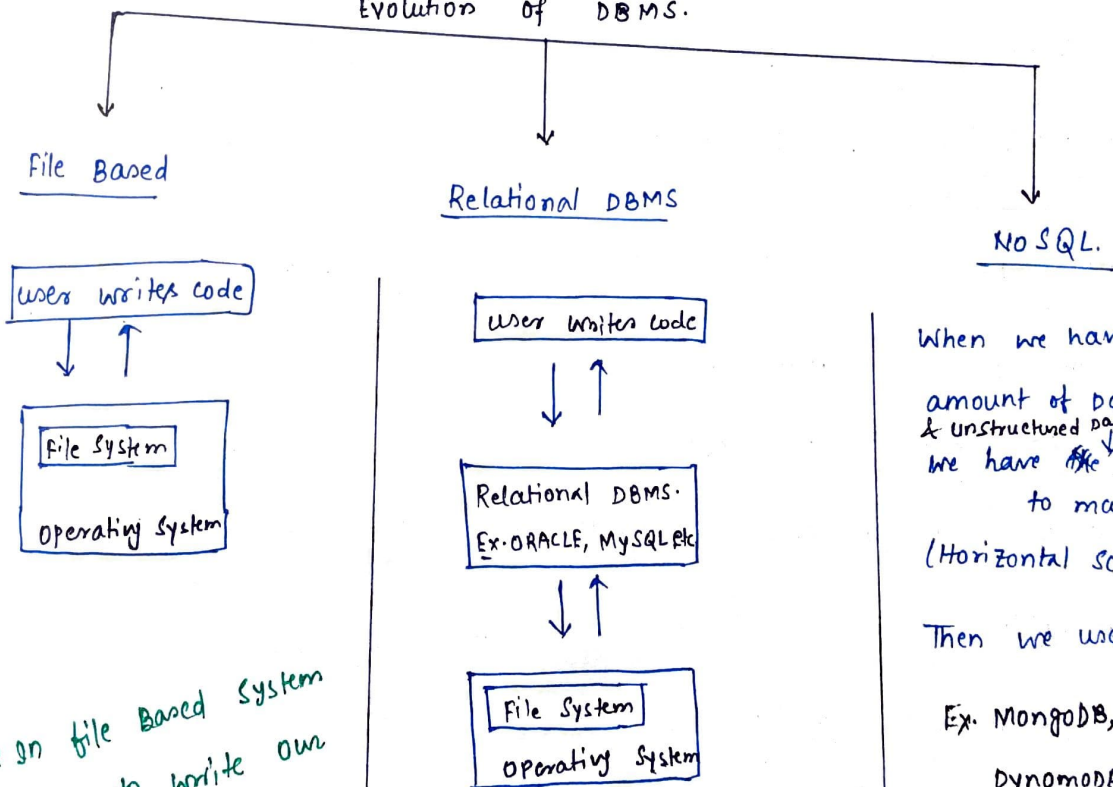 Evolution of DBMS.
File Based
user writes code
File System
Operating System
In file Based System
write our
Relational DBMS
user writes code
Relational DBMS.
Ex. ORACLE, MySQL etc
File System
Operating System
NO SQL.
When we hav
amount of Da
& unstructured Da
we have
to ma
(Horizontal sc
Then we use
Ex. MongoDB,
DynomoDB